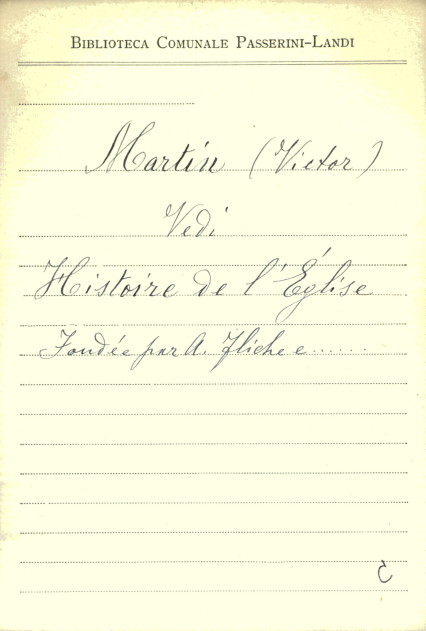 BIBLIOTECA COMUNALE PASSERINI-LANDI
Martin (Victor)
Vedi
Histoire de l'Église
Fondée par A. Fliche e......